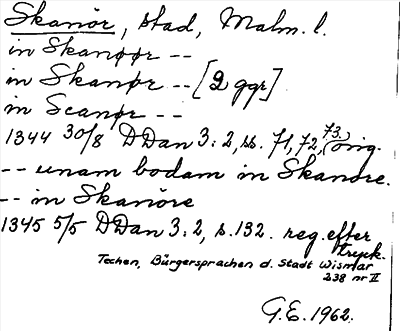 Skanör, stad, Malm. l.
in Skanøør --
in Skanør -- [2 ggr]
in Scanør --
1344 30/8 DDan 3:2, ss. 71, 72, 73. (orig.
-- unam bodam in Skanore.
-- in Skanöre
1345 5/5 DDan 3:2, s. 132. reg. efter
tryck.
Techen, Bürgersprachen d. Stadt Wismar
238 nr II
G.E. 1962.